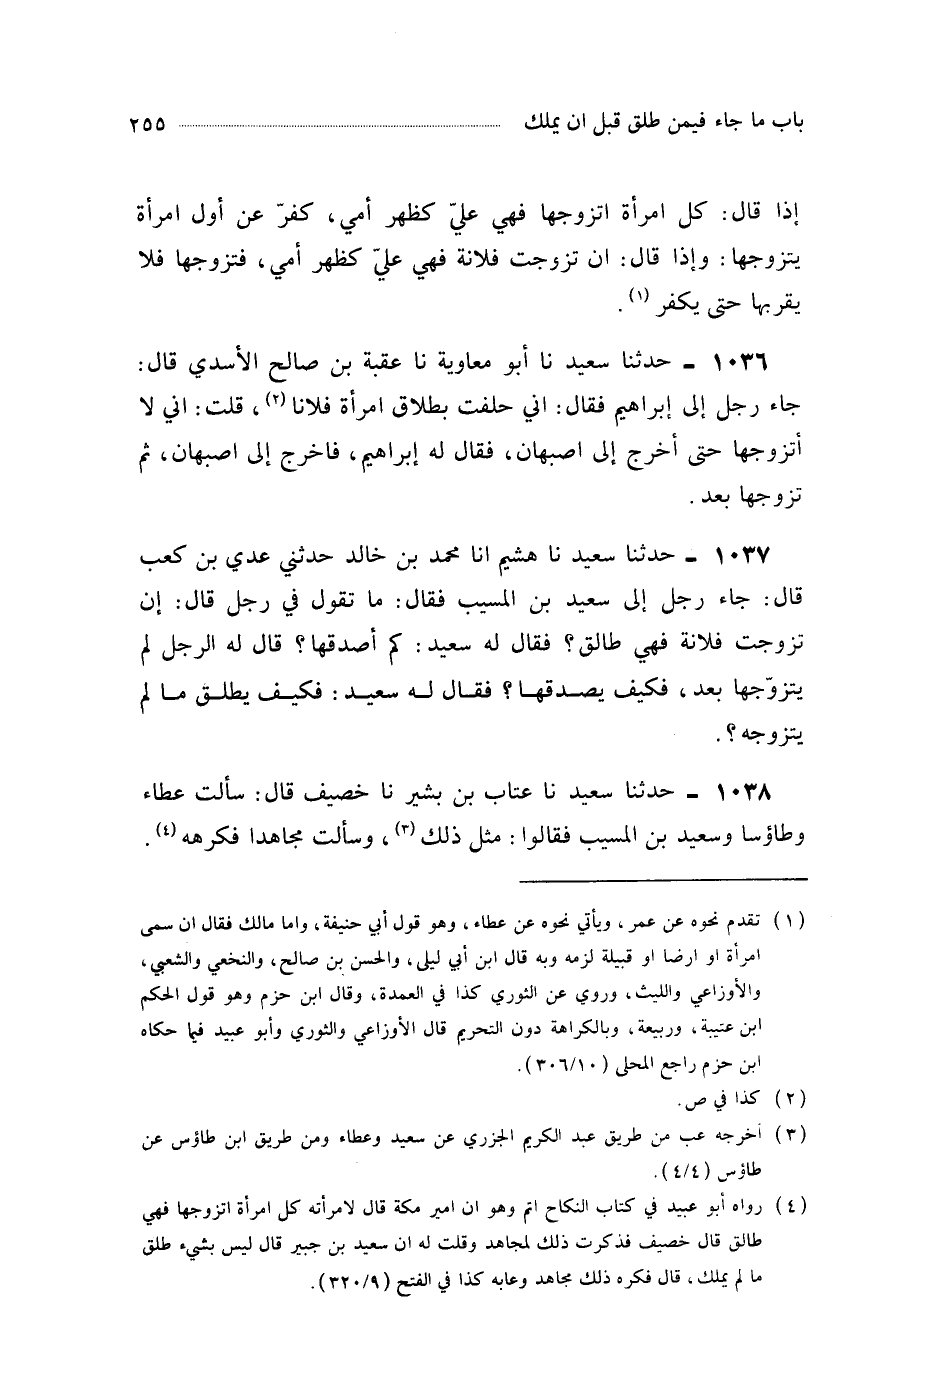 باب ما جاء فيمن طلق قبل ان يملك ........ ٢٥٥
إذا قال: كل امرأة اتزوجها فهي عليّ كظهر أمي، كفرّ عن أول امرأة
يتزوجها: وإذا قال: ان تزوجت فلانة فهي عليّ كظهر أمي، فتزوجها فلا
يقربها حتى يكفر (١).
١٠٣٦ ـ حدثنا سعيد نا أبو معاوية نا عقبة بن صالح الأسدي قال:
جاء رجل إلى إبراهيم فقال: اني حلفت بطلاق امرأة فلانا(٢)، قلت: اني لا
أتزوجها حتى أخرج إلى اصبهان، فقال له إبراهيم، فاخرج إلى اصبهان، ثم
تزوجها بعد.
١٠٣٧ ـ حدثنا سعيد نا هشيم انا محمد بن خالد حدثني عدي بن كعب
قال: جاء رجل إلى سعيد بن المسيب فقال: ما تقول في رجل قال: إن
تزوجت فلانة فهي طالق؟ فقال له سعيد: كم أصدقها؟ قال له الرجل لم
يتزوّجها بعد، فكيف يصدقها؟ فقال له سعيد: فكيف يطلق ما لم
يتزوجه؟.
١٠٣٨ ـ حدثنا سعيد نا عتاب بن بشير نا خصيف قال: سألت عطاء
وطاؤسا وسعيد بن المسيب فقالوا: مثل ذلك(٣)، وسألت مجاهدا فكرهه(٤).
(١) تقدم نحوه عن عمر، ويأتي نحوه عن عطاء، وهو قول أبي حنيفة، واما مالك فقال ان سمى
امرأة او ارضا او قبيلة لزمه وبه قال ابن أبي ليلى، والحسن بن صالح، والنخعي والشعبي،
والأوزاعي والليث، وروي عن الثوري كذا في العمدة، وقال ابن حزم وهو قول الحكم
ابن عتيبة، وربيعة، وبالكراهة دون التحريم قال الأوزاعي والثوري وأبو عبيد فيما حكاه
ابن حزم راجع المحلى (٣٠٦/١٠).
(٢) كذا في ص.
(٣) اخرجه عب من طريق عبد الكريم الجزري عن سعيد وعطاء ومن طريق ابن طاؤس عن
طاؤس (٤/٤).
(٤) رواه أبو عبيد في كتاب النكاح اتم وهو ان امير مكة قال لامرأته كل امرأة اتزوجها فهي
طالق قال خصيف فذكرت ذلك لمجاهد وقلت له ان سعيد بن جبير قال ليس بشيء طلق
ما لم يملك، قال فكره ذلك مجاهد وعابه كذا في الفتح (٣٢٠/٩).